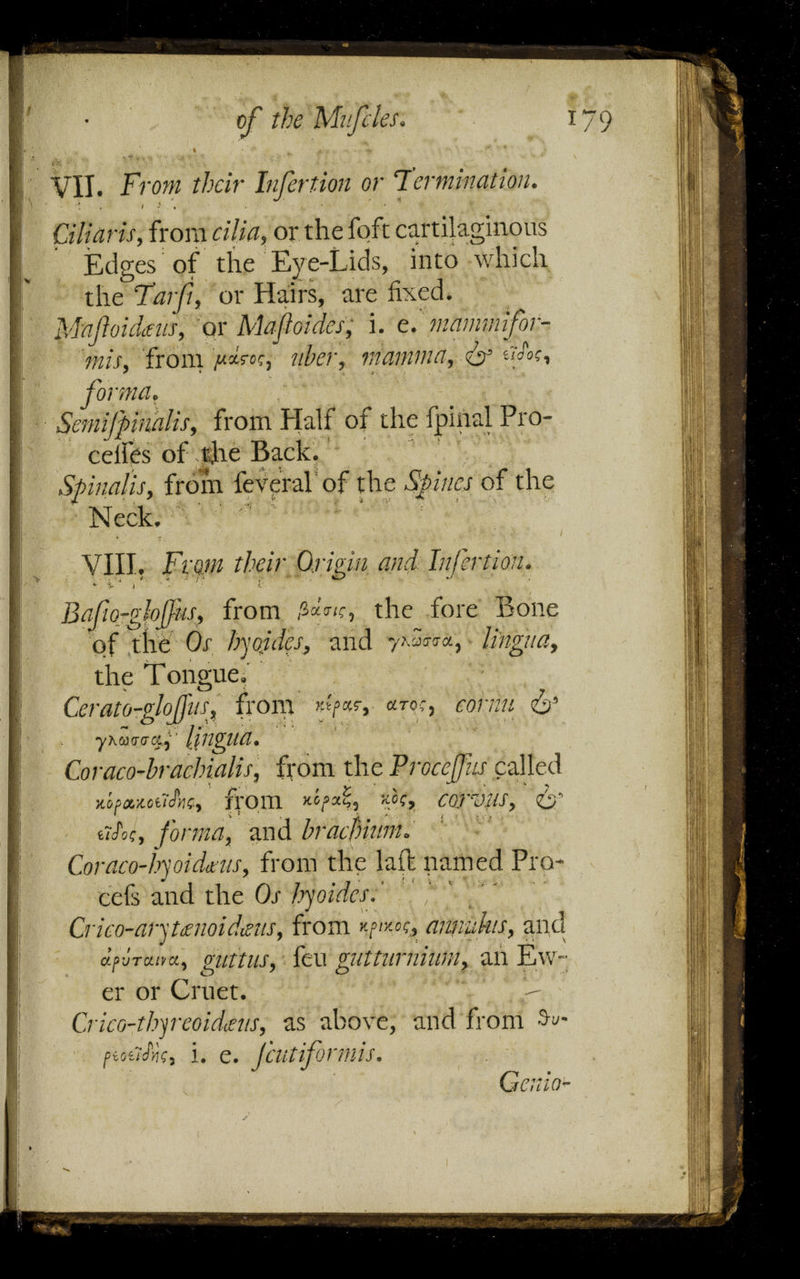 of the Muſcles. 179
VII. From their Inſertion or Termination.
Ciliaris, from cilia, or the ſoft cartilaginous
Edges of the Eye-Lids, into which
the Tarſi, or Hairs, are fixed.
Maſtoidæus, or Maſtoides; i. e. mammifor-
mis, from μάϛος, uber, mamma, & εἶδος,
forma.
Semiſpinalis, from Half of the ſpinal Pro-
ceſſes of the Back.
Spinalis, from ſeveral of the Spines of the
Neck.
VIII. From their Origin and Inſertion.
Baſio-gloſſus, from βάσις, the fore Bone
of the Os hyoides, and γλῶσσα, lingua,
the Tongue.
Cerato-gloſſus, from κέρας, ατος, cornu &
γλῶσσα, lingua.
Coraco-brachialis, from the Proceſſus called
κορακοειδὴς, from κόραξ, κὸς, corvus, &
εἶδος, forma, and brachium.
Coraco-hyoidæus, from the laſt named Pro-
ceſs and the Os hyoides.
Crico-arytænoidæus, from κρίκος, annulus, and
ἀρύταινα, guttus, ſeu gutturnium, an Ew-
er or Cruet.
Crico-thyreoidæus, as above, and from ϑυ-
ρεοειδὴς, i. e. ſcutiformis.
Genio-